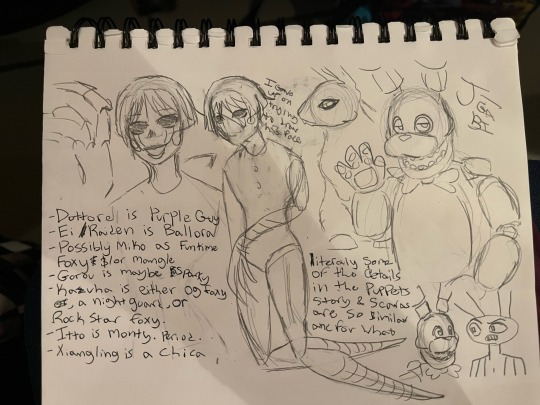 I Gave
up on
trying
to draw
his face
- Dottore is Purple Guy
- Ei / Raiden is Ballora
- Possibly Miko as Funtime
Foxy &/or Mangle
- Gorou is maybe
- Kazuha is either OG Foxy
, a night guard, or
Rock Star Foxy.
- Itto is Monty. Period.
- Xiangling is a Chica
literaly some
of the details
in the Puppets
story & Scaras
are so similar
and for what